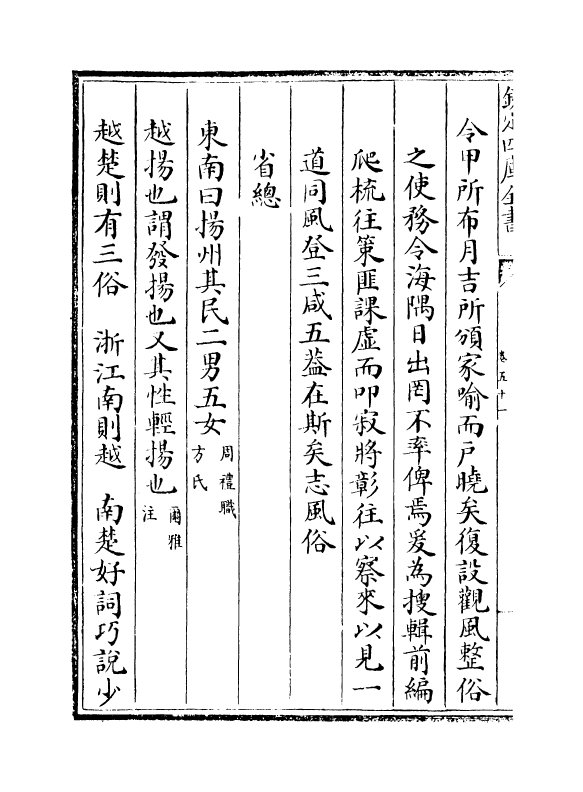 欽定四庫全書
卷五十一
令甲所布月吉所頒家喻而戶曉矣復設觀風整俗
之使務令海隅日出罔不率俾焉爰為搜輯前編
爬梳往策匪課虛而叩寂將彰往以察來以見一
道同風登三咸五葢在斯矣志風俗
省總
東南曰揚州其民二男五女周禮職方氏
越揚也謂發揚也又其性輕揚也爾雅注
越楚則有三俗　浙江南則越　南楚好詞巧說少